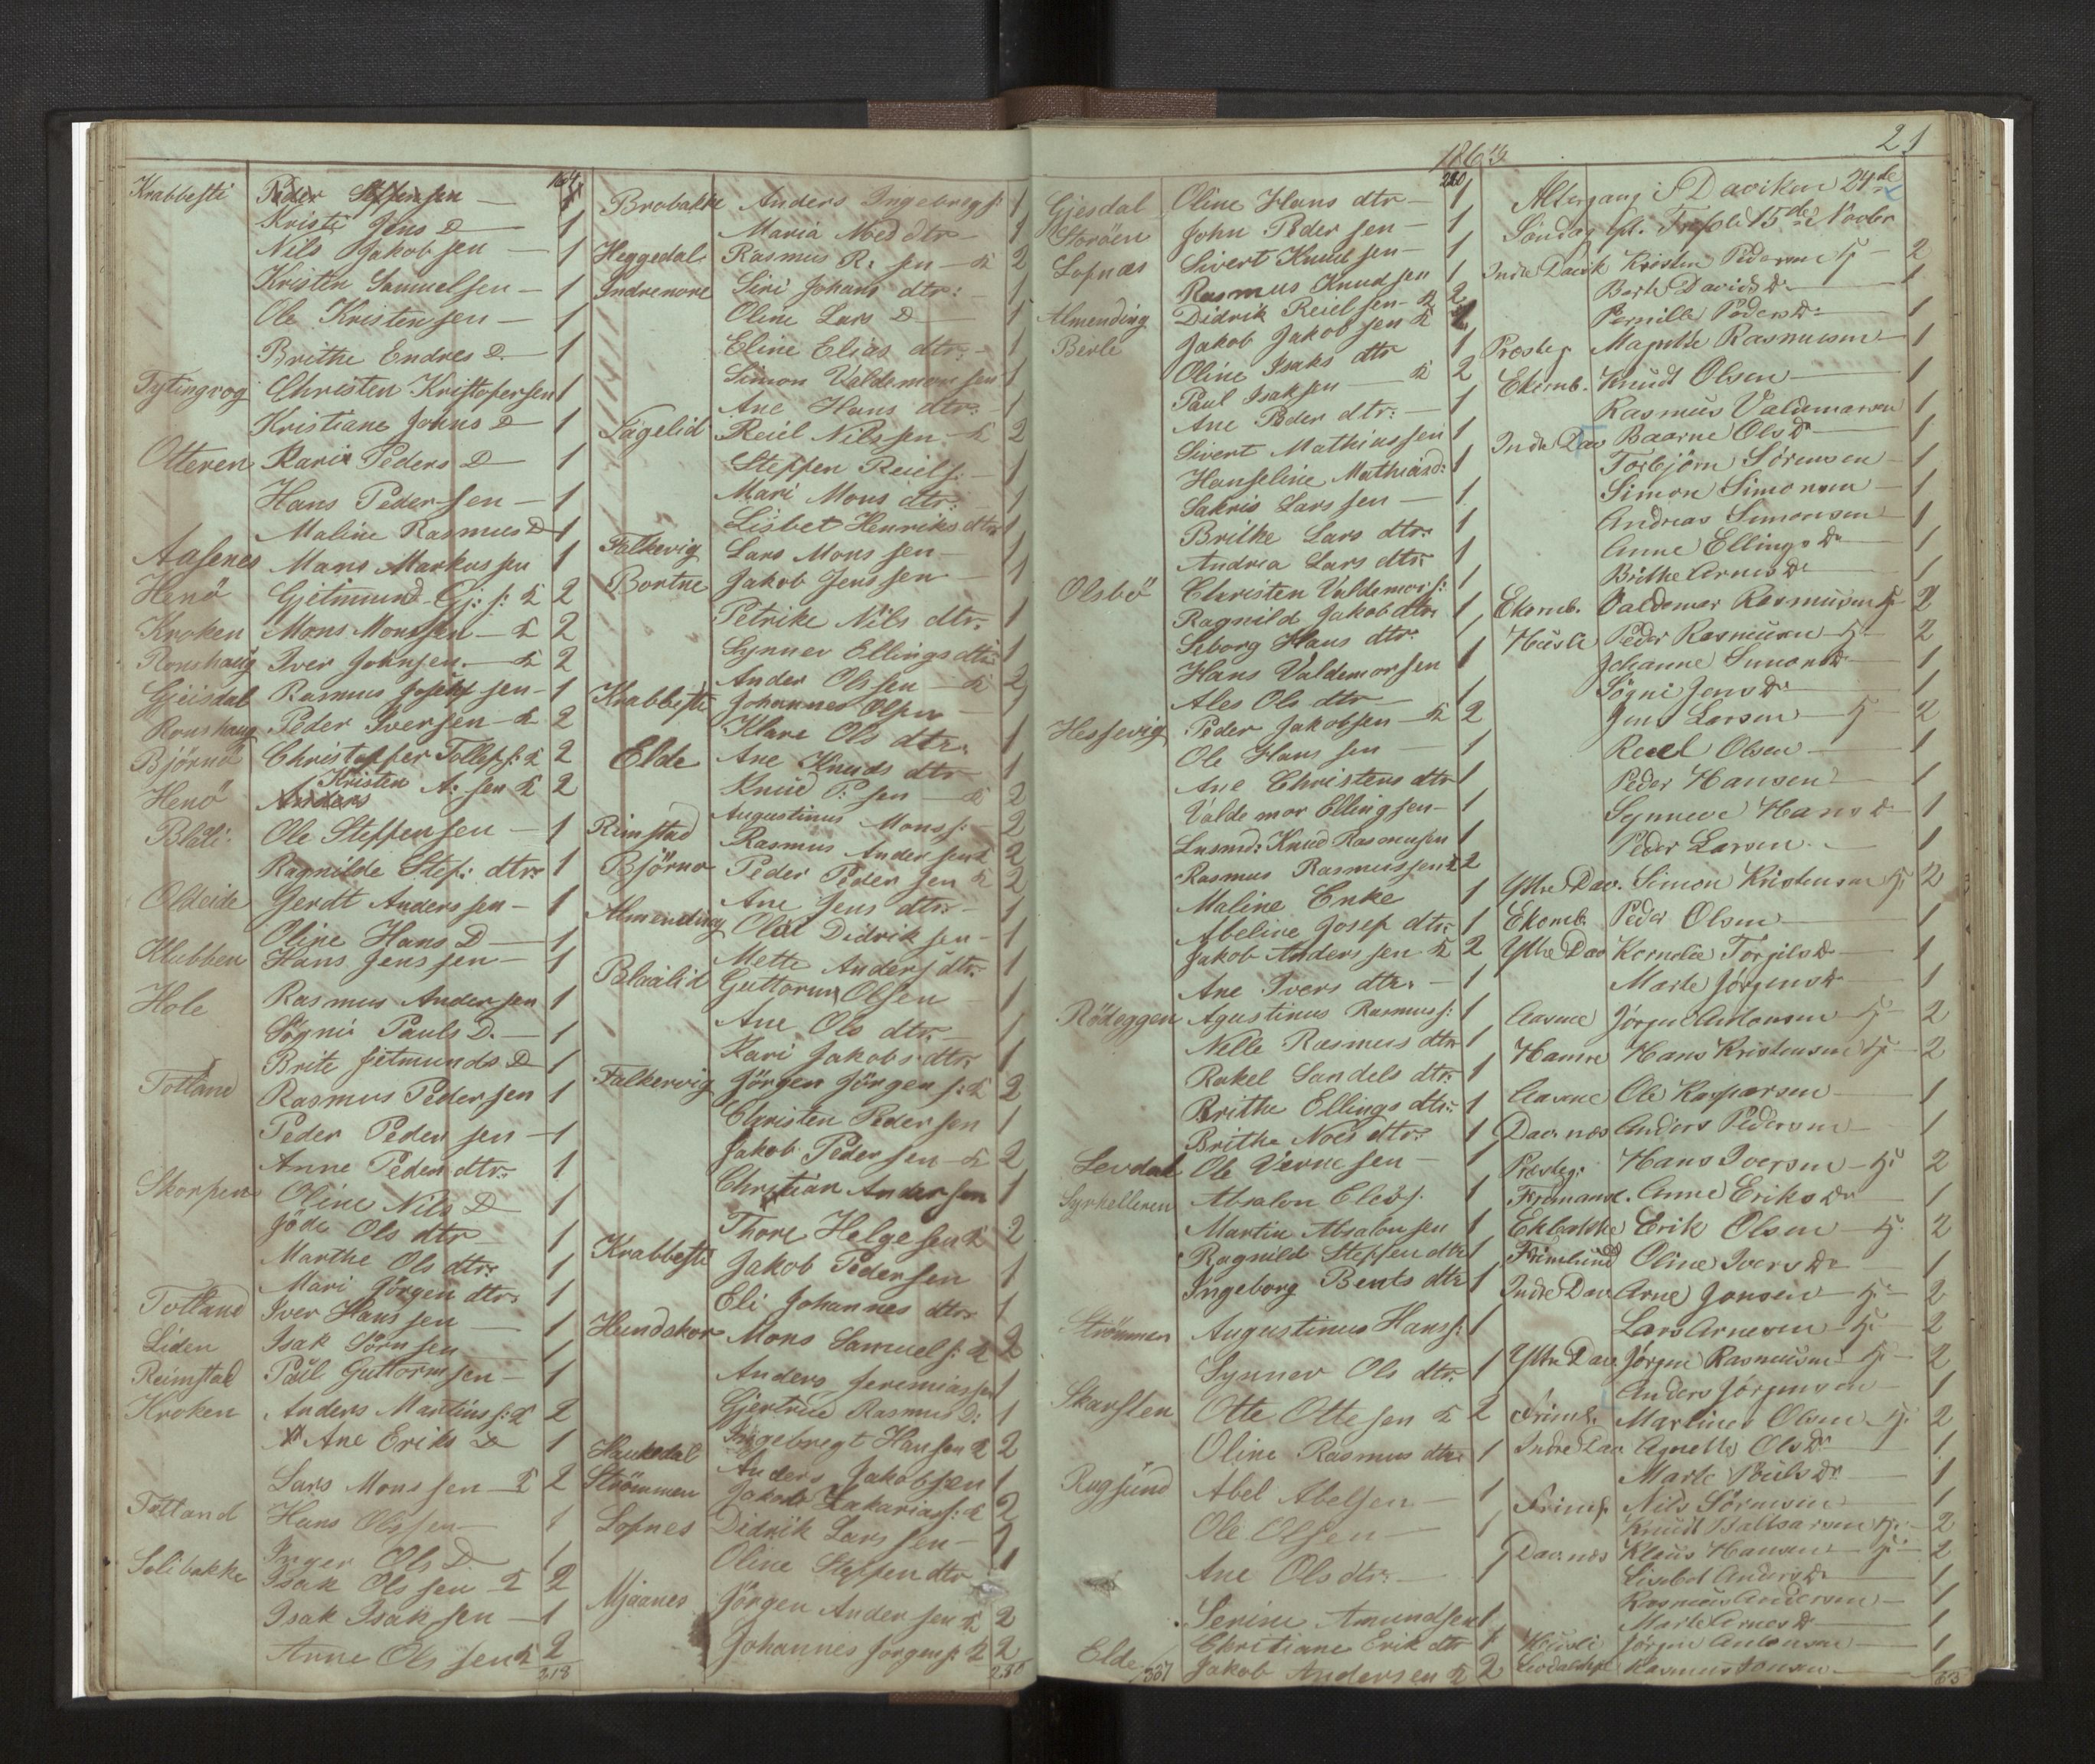 164
Krabbesti Peder Steffensen — 1
Kristi Jens D — 1
Nils Jakobsen — 1
Kristen Samuelsen — 1
Ole Kristensen — 1
Brithe Endres D. — 1
Tytingvog Christen Kristofersen 1
Kristiane Johns D — 1
Otteren Kari Peders D — 1
Hans Pedersen — 1
Maline Rasmus D 1
Aasenes Mans Markussen 1
Henö Gjetmund Gj: s: 2
Kroken Mons Monssen — 2
Ronshaug Iver Johnsen. — 2
Gjeisdal Rasmus Josefsen — 1
Ronshaug Peder Iversen — 2
Björnö Christoffer Tollefs: 2
Henö Kristen A: sen 2
Blåli Ole Steffensen — 1
Ragnilde Stef: dtr: 1
Oldeide Gerdt Anderssen — 1
Oline Hans D — 1
Klubben Hans Jenssen — 1
Hole Rasmus Andersen 1
Sögni Pauls D. — 1
Brite Jetmunds D 1
Totland Rasmus Pedersen 1
Peder Pedersen — 1
Anne Peder dtr: 1
Skorpen Oline Nils D 1
Jöde Ols dtr 1
Marthe Ols dtr: 1
Mari Jörgen dtr: 1
Totland Iver Hanssen — 1
Liden Isak Sörnsen 1
Reimstad Pål Guttormsen — 1
Kroken Anders Martins: 2
Ane Eriks D 1
Lars Monssen 2
Totland Hans Olssen — 1
Inger Ols D 1
Solibakke Isak Olssen 2
Isak Isaksen — 1
Anne Olssen 2
218
Brobakke Anders Ingebregs: 1
Maria Mod dtr — 1
Heggedal Rasmus R: sen — 2
Indrenore Siri Johans dtr: — 1
Oline Lars D — 1
Eline Elias dtr: — 1
Simon Valdemorsen 1
Ane Hans dtr: — 1
Lägelid Reiel Nilssen 2
Steffen Reiels: — 1
Mari Mons dtr: — 1
Lisbet Henriks dtr 1
Falkevig Lars Monssen — 1
Bortne Jakob Jenssen — 1
Petrike Nils dtr. 1
Synnev Ellings dtr 1
Ander Olssen — 2
Krabbesti Johannes Olsen 1
Klare Ols dtr. 1
Elde Ane Knuds dtr 1
Knud P: sen — 2
Augustinus Mons s: — 2
Rimstad Rasmus Andersen 2
Björnø Peder Pedersen 2
Ane Jens dtr: — 1
Almending Olai Didriksen — 1
Mette Anders dtr: 1
Blaalid Guttorm Olsen 1
Ane Ols dtr. — 1
Kari Jakobs dtr 1
Falkevig Jörgen Jörgens: 2
Christen Pedersen 1
Jakob Pedersen — 2
Christian Andersen 1
Thore Helgesen 2
Krabbesti Jakob Pedersen 1
Eli Johannes dtr: 1
Hundskor Mons Samuels: 2
Anders Jeremiassen 1
Gjertrud Rasmus D: 1
Ingebregt Hansen 2
Haukedal Anders Jakobsen 1
Strömmen Jakob Zakarias: 2
Lofnes Didrik Larssen — 1
Oline Steffen dtr 1
Mjaanes Jörgen Andersen 2
Johannes Jorgens: 2
280
280
Gjesdal Oline Hans dtr — 1
Storöen John Pedersen — 1
Lofnæs Sivert Knudsen — 1
Rasmus Knudsen 1
Almending Didrik Reielsen — 2
Berle Jakob Jakobsen
Oline Isaks dtr 1
Paul Isaksen — 2
Ane Peder dtr: — 1
Sivert Mathiassen 1
Hanseline Mathiasd: 1
Sakris Larssen — 1
Brithe Lars dtr: 1
Andrea Lars dtr: 1
Olsbö Christen Valdemors: 1
Ragnild Jakob dtr 1
Seborg Hans dtr: 1
Hans Valdemorsen 1
Ales Ols dtr — 1
Hessevig Peder Jakobsen — 2
Ole Hanssen — 1
Ane Christens dtr 1
Valdemor Ellingsen — 1
Lusmd: Knud Rasmusen 1
Rasmus Rasmussen 2
Maline Enke 1
Abeline Josef dtr: 1
Jakob Anderssen 2
Ane Ivers dtr. — 1
Rödeggen Agustinus Rasmus s: 1
Nelle Rasmus dtr 1
Rakel Sandels dtr: 1
Brithe Ellings dtr: 1
Brithe Noes dtr: 1
Levdal Ole Vernesen — 1
Syrhelleren Absalon Elovs: 1
Martin Absalonsen 1
Ragnild Steffen dtr 1
Ingeborg Bents dtr 1
Strömmen Augustinus Hans s: 1
Synnev Ols dtr. 1
Skarsten Otte Ottesen 2
Oline Rasmus dtr: 1
Rugsund Abel Abelsen — 1
Ole Olsen — 1
Ane Ols dtr: — 1
Serine Amundsen 1
Christiane Erik dtr 1
Elde Jakob Andersen 2
357
21
Altergang i Daviken 24de
Søndag Trefoldi 15de Novbr
Indre Davik Kristen Pedersen 2
Berte Davids Dr — 1
Pernille Peders Dr — 1
Præsteg Magnthe Rasmussen 1
Ekemb. Knudt Olsen — 1
Rasmus Valdemarsen 1
Indre Dav Baarne Ols Dr 1
Torbjørn Sørensen — 1
Simon Simonsen — 1
Andreas Simonsen — 1
Anne Ellings Dr — 1
Brithe Arnes Dr — 1
Ekemb. Valdemar Rasmusen 2
Husle Peder Rasmusen 2
Johanne Simons Dr — 1
Søgni Jens Dr — 1
Jens Larsen — 2
Reiel Olsen — 1
Peder Hansen — 1
Synneve Hans Dr — 1
Peder Larsen — 1
Ytre Dav. Simon Kristensen 2
Ekemb. Peder Olsen — 1
Ytre Dav Kornelia Torgils Dr — 1
Marte Jørgens Dr — 1
Aasene Jørgen Antonsen 2
Hamre Hans Kristensen 2
Aasene Ole Kasparsen — 1
Davnes Anders Pedersen — 1
Præsteg: Hans Iversen — 2
Anne Eriks Dr — 1
Erik Olsen — 2
Oline Ivers Dr — 1
Indre Dav Arne Jonsen — 2
Lars Arnesen — 2
Ytre Dav Jørgen Rasmusen 2
Anders Jørgensen — 1
Martinus Olsen 2
Indre Dav Agnette Ols Dr 1
Marte Pouls Dr — 1
Nils Sørensen — 1
Knudt Baltsarsen 2
Davnes Klaus Hansen — 2
Lisebet Anders Dr — 1
Rasmus Andersen — 1
Marte Arnes Dr — 1
Husli Jørgen Antonsen — 1
Rasmus Jonsen — 1
63